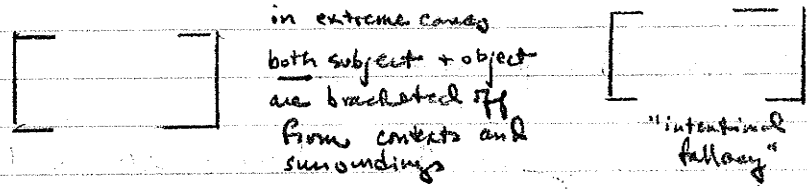 in extreme cases
both subject + object
are bracketed off
from contexts and
surroundings
"intentional
fallacy"